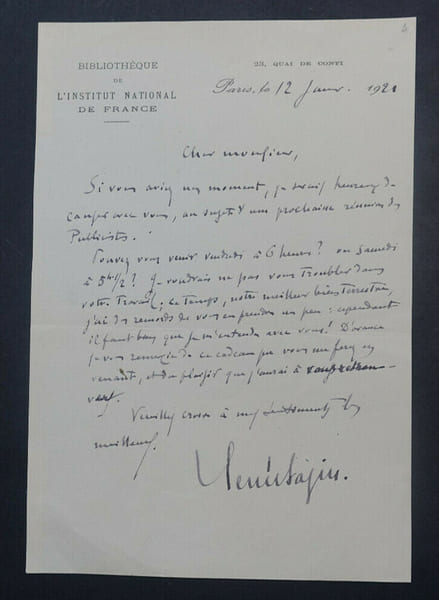 BIBLIOTHÈQUE
DE
L'INSTITUT NATIONAL
DE FRANCE
23, QUAI DE CONTI
Paris, le 12 Janv. 1921
Cher monsieur,
Si vous aviez un moment, je serais heureux de
causer avec vous, au sujet d'une prochaine réunion des
Publicistes.
Pouvez vous venir vendredi à 6 heures ? ou Samedi
à 5h 1/2 ? Je voudrais ne pas vous troubler dans
votre travail ; ce temps, notre meilleur bien terrestre,
j'ai des remords de vous en prendre un peu : cependant
il faut bien que je m'entende avec vous ! D'avance
je vous remercie de ce cadeau que vous me ferez en
venant, et du plaisir que j'aurai à
Veuillez croire à mes sentiments les
meilleurs.